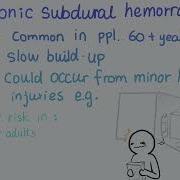 onic subdural hemorr
Common in ppl. 60+ yea
Slow build-up
Could occur from minor
injuries e.g.
risk in :
adults